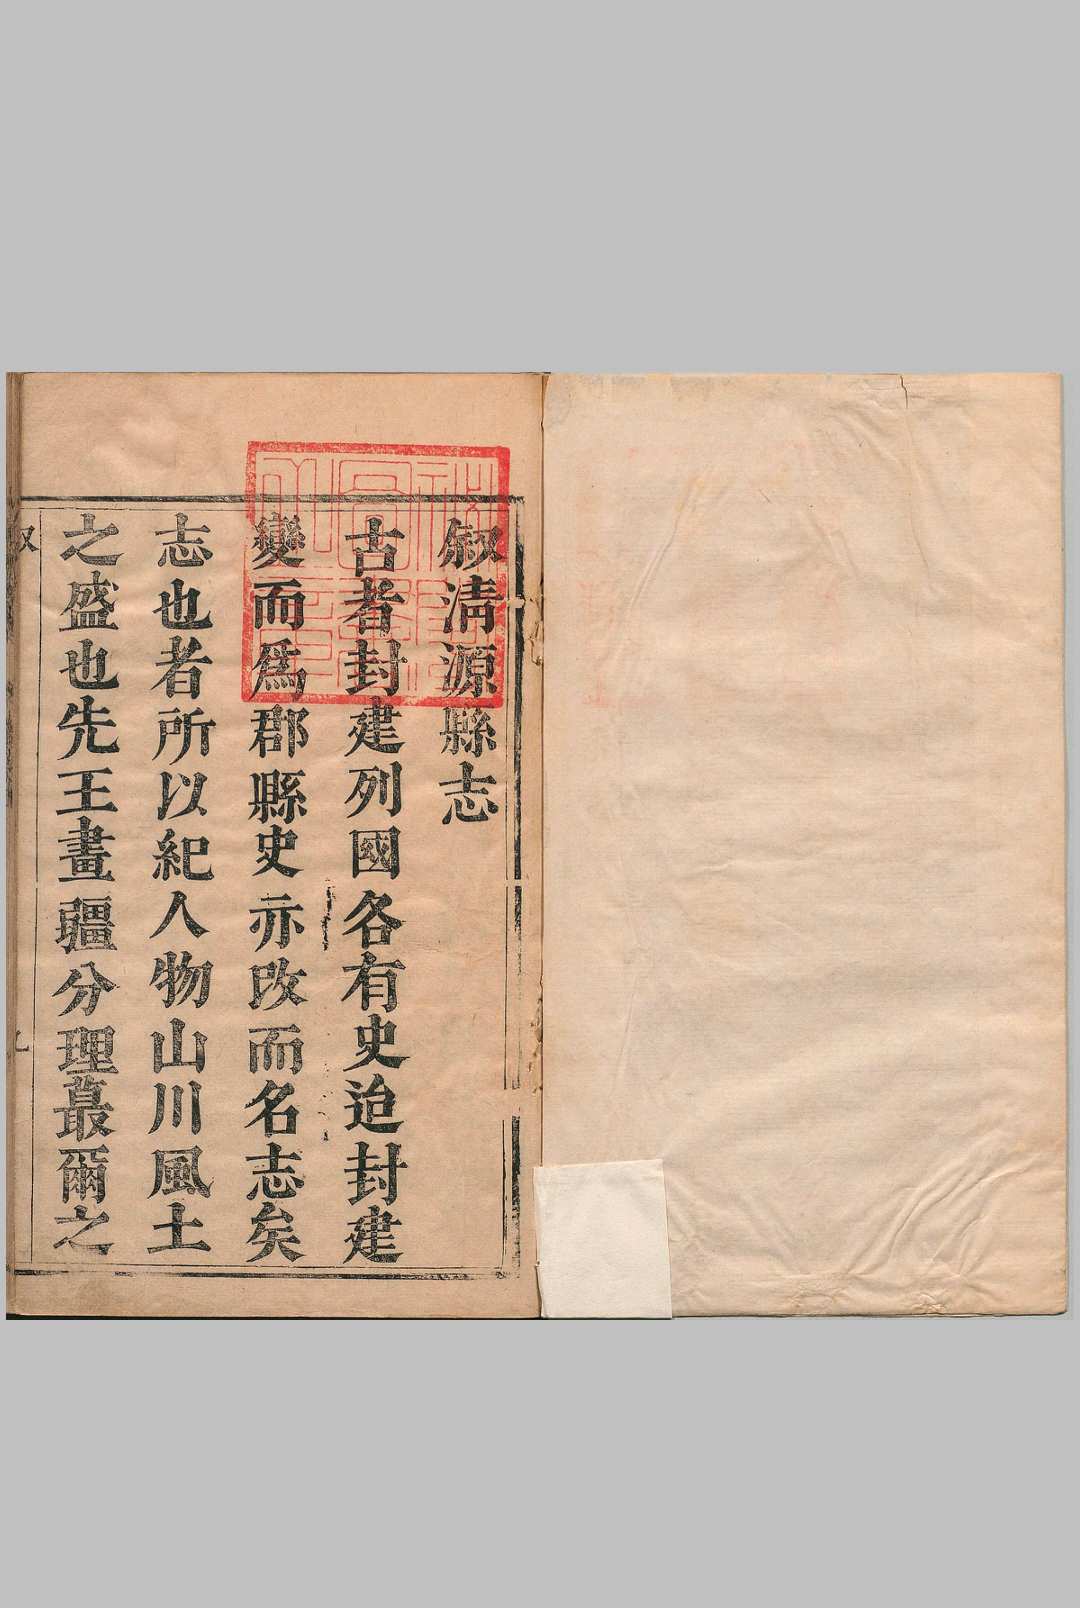 叙清源縣志
古者封建列國各有史迨封建
變而爲郡縣史亦改而名志矣
志也者所以紀人物山川風土
之盛也先王畫疆分理蕞爾之